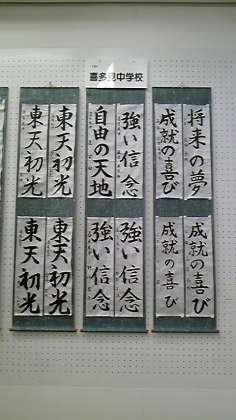 喜多見中学校
将来の夢
成就の喜び
成就の喜び
成就の喜び
強い信念
自由の天地
強い信念
強い信念
東天初光
東天初光
東天初光
東天初光